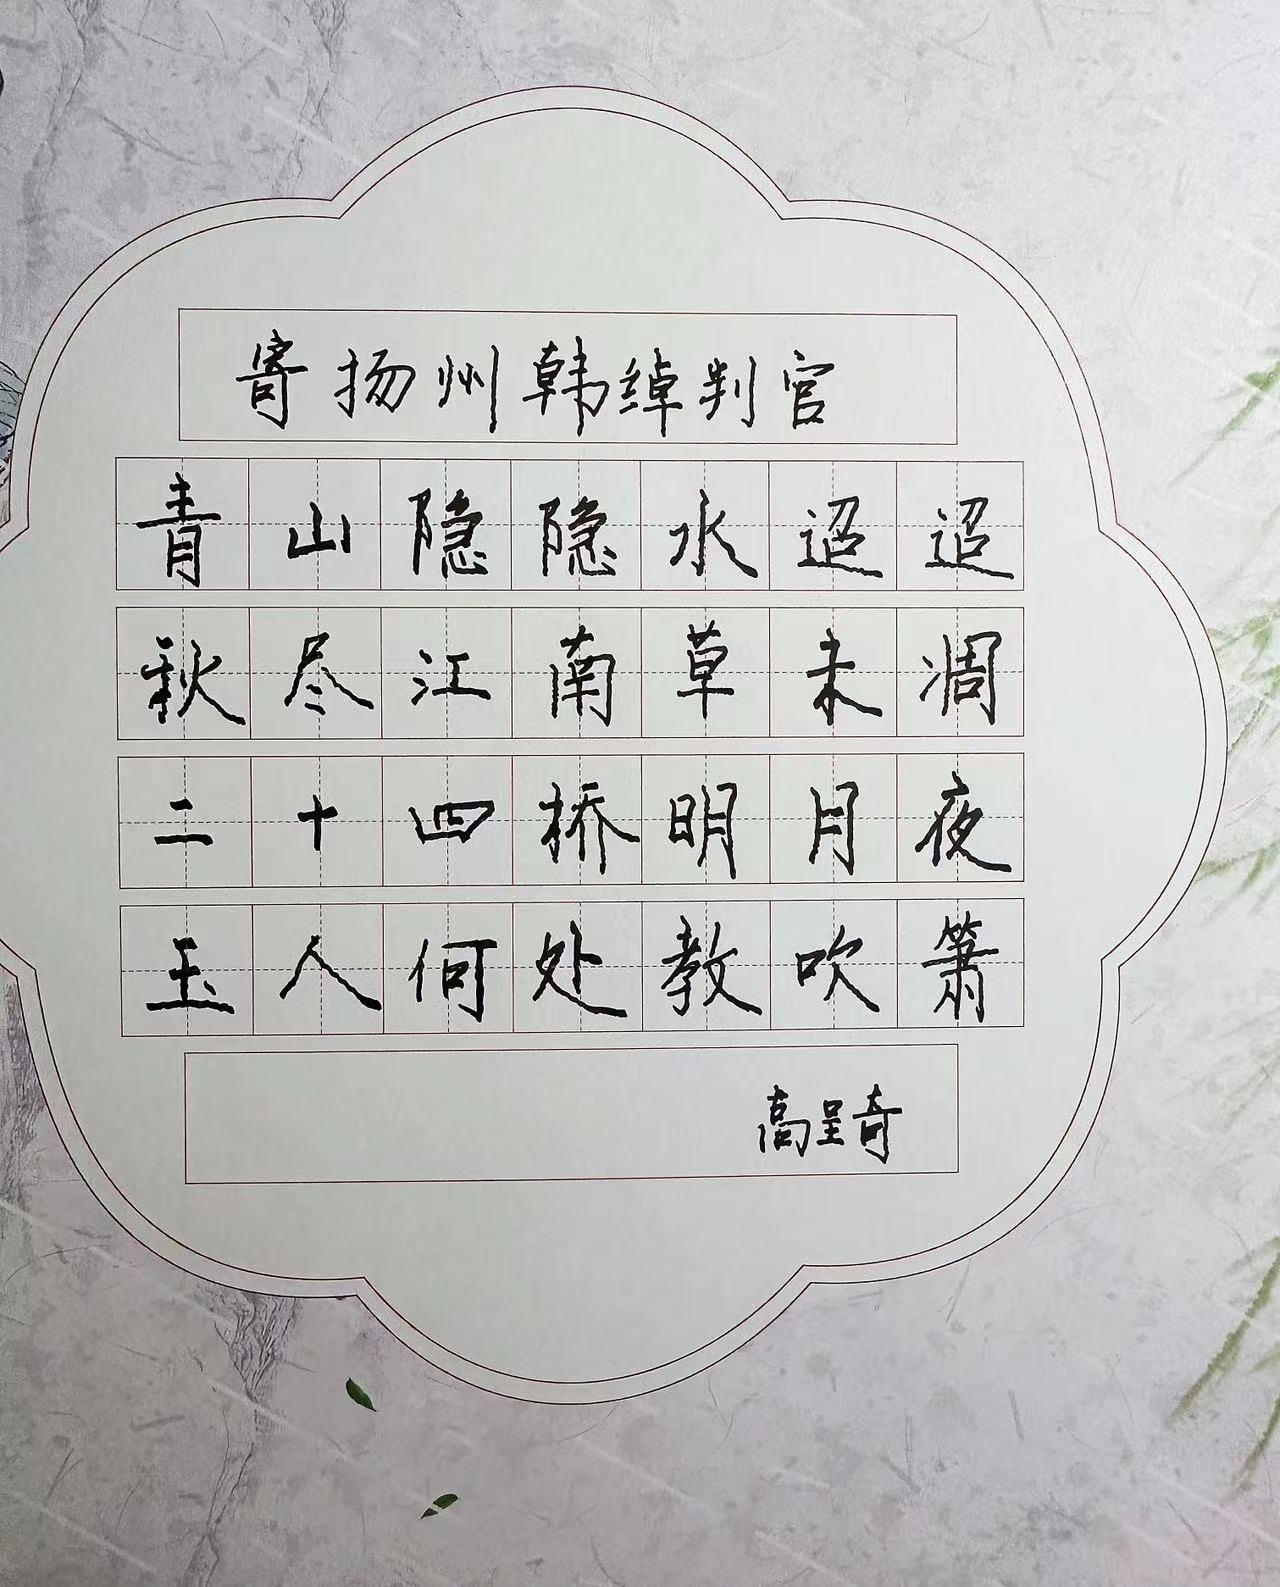 寄扬州韩绰判官
青山隐隐水迢迢
秋尽江南草未凋
二十四桥明月夜
玉人何处教吹箫
高呈奇